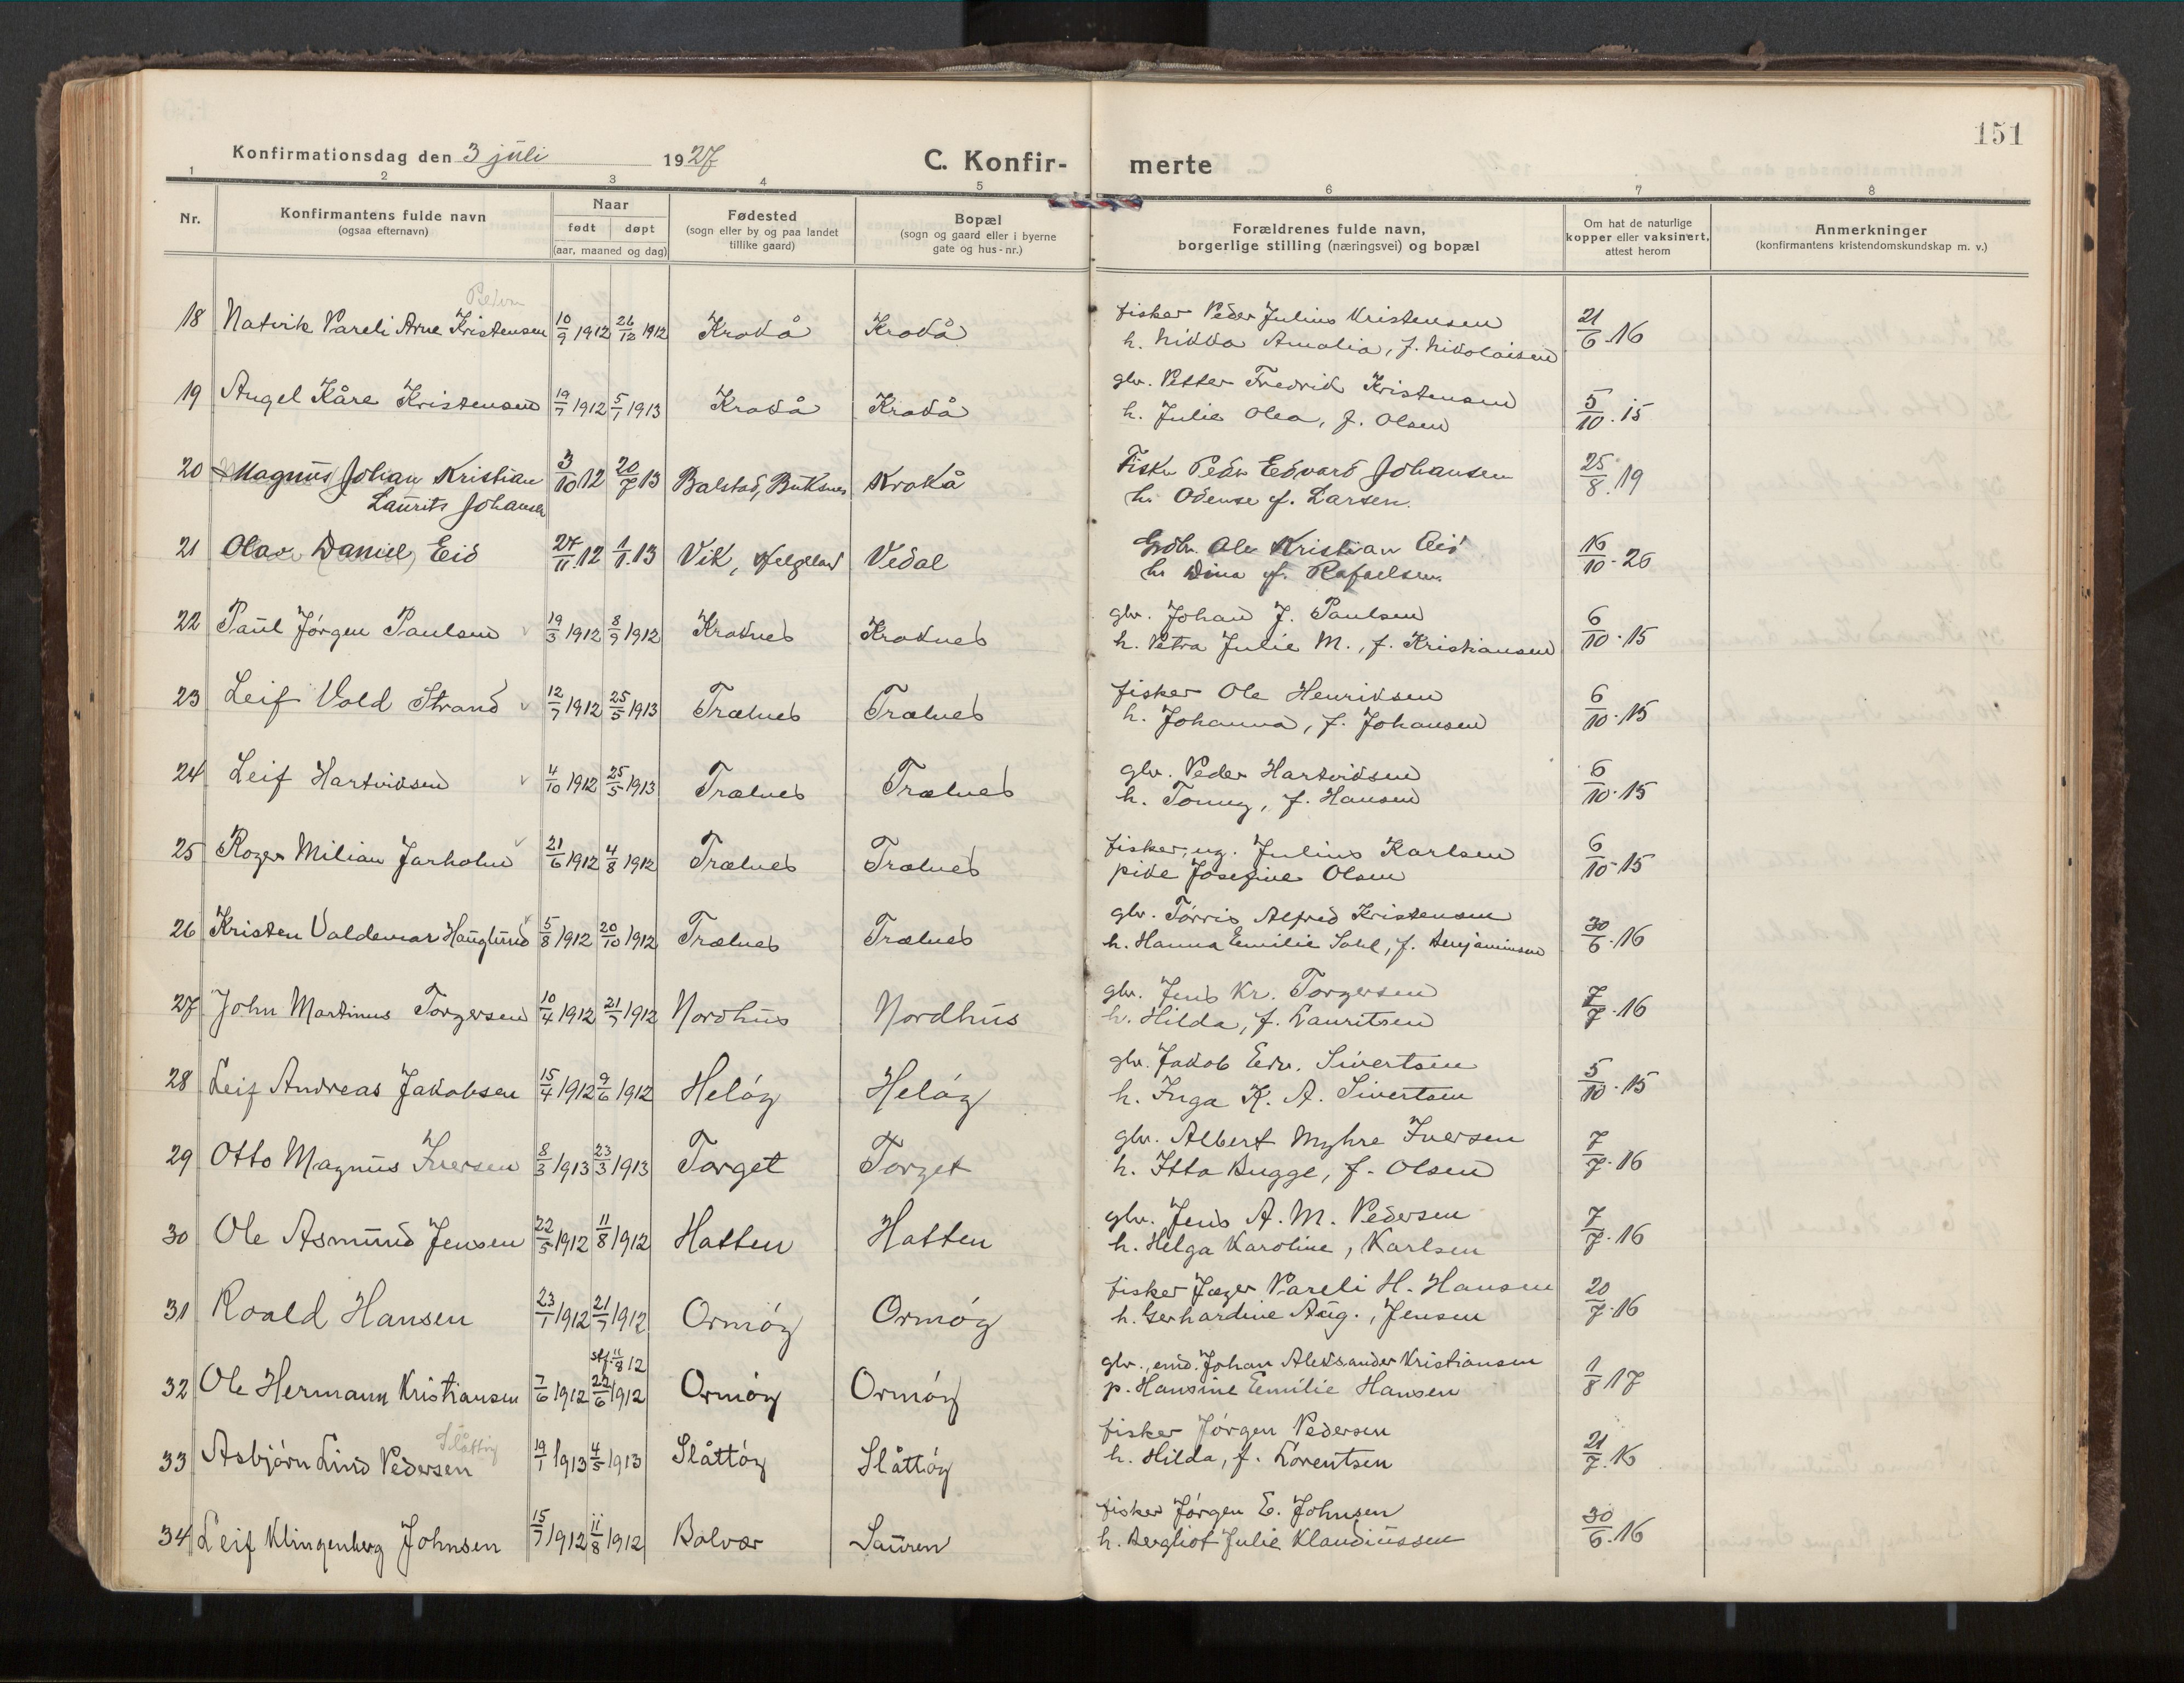 151
Konfirmationsdag den 3 juli 1927 C. Konfir- merte
1 2 3 4 5 6 7 8
Nr. Konfirmantens fulde navn (ogsaa efternavn) Naar født døpt (aar, maaned og dag) Fødested (sogn eller by og paa landet tillike gaard) Bopæl (sogn og gaard eller i byerne gate og hus-nr.) Forældrenes fulde navn, borgerlige stilling (næringsvei) og bopæl Om hat de naturlige kopper eller vaksinert, attest herom Anmerkninger (konfirmantens kristendomskundskap m. v.)
18 Natvik Pareli Arne Kristensen 10/9 1912 26/12 1912 Krokå Krokå fisker Peder Julius Kristensen 21/6.16
h. Nikka Amalia, f. Nikolaisen
19 Angel Kåre Kristensen 19/7 1912 5/1 1913 Krokå Krokå glv. Petter Fredrik Kristensen 5/10.15
h. Julie Olea, f. Olsen
20 Magnus Johan Kristian 3/10 12 20/7 13 Balstad, Buksnes Krokå Fisker Peder Edvard Johansen 25/8.19
Laurits Johansen h. Odense f. Larsen.
21 Olav Daniel Eid 27/11.12 1/1.13 Vik, Helgeland Vedal Grdbr. Ole Kristian Eid 16/10-26
h. Dina f. Rafaelsen.
22 Paul Jørgen Paulsen 19/3 1912 8/9 1912 Kroknes Kroknes glv. Johan J. Paulsen 6/10.15
h. Petra Julie M., f. Kristiansen
23 Leif Vold Strand 12/7 1912 25/5 1913 Trælnes Trælnes fisker Ole Henriksen 6/10.15
h. Johanna, f. Johansen
24 Leif Hartviksen 4/10 1912 25/5 1913 Trælnes Trælnes glv. Peder Hartviksen 6/10.15
h. Tonny, f. Hansen
25 Roger Milian Jarholm 21/6 1912 4/8 1912 Trælnes Trælnes fisker, ug. Julius Karlsen 6/10.15
pike Josefine Olsen
26 Kristen Valdemar Hauglund 5/8 1912 20/10 1912 Trælnes Trælnes glv. Tørris Alfred Kristensen 30/6.16
h. Hanna Emilie, f. Benjaminsen
27 John Martinus Torgersen 10/4 1912 21/7 1912 Nordhus Nordhus glv. Jens Kr. Torgersen 7/7.16
h. Hilda, f. Lauritsen
28 Leif Andreas Jakobsen 15/4 1912 9/6 1912 Heløy Heløy glv. Jakob Edv. Sivertsen 5/10.15
h. Inga K. A. Sivertsen
29 Otto Magnus Iversen 8/3 1913 23/3 1913 Torget Torget glv. Albert Myhre Iversen 7/7.16
h. Itta Bugge, f. Olsen
30 Ole Asmund Jensen 22/5 1912 11/8 1912 Hatten Hatten glv. Jens A. M. Pedersen 7/7.16
h. Helga Karoline, Karlsen
31 Roald Hansen 23/1 1912 21/7 1912 Ormøy Ormøy fisker Jæger Pareli H. Hansen 20/7.16
h. Gerhardine Aug., Jensen
stf. 11/8 12
32 Ole Hermann Kristiansen 7/6 1912 22/6 1912 Ormøy Ormøy glv., enkd. Johan Aleksander Kristiansen 1/8 17
p. Hansine Emilie Hansen
Slåttøy
33 Asbjørn Lind Pedersen 19/1 1913 4/5 1913 Slåttøy Slåttøy fisker Jørgen Pedersen 21/7.16
h. Hilda, f. Lorentsen
34 Leif Klingenberg Johnsen 15/7 1912 11/8 1912 Bolvær Sauren fisker Jørgen E. Johnsen 30/6.16
h. Bergliot Julie Klaudiussen